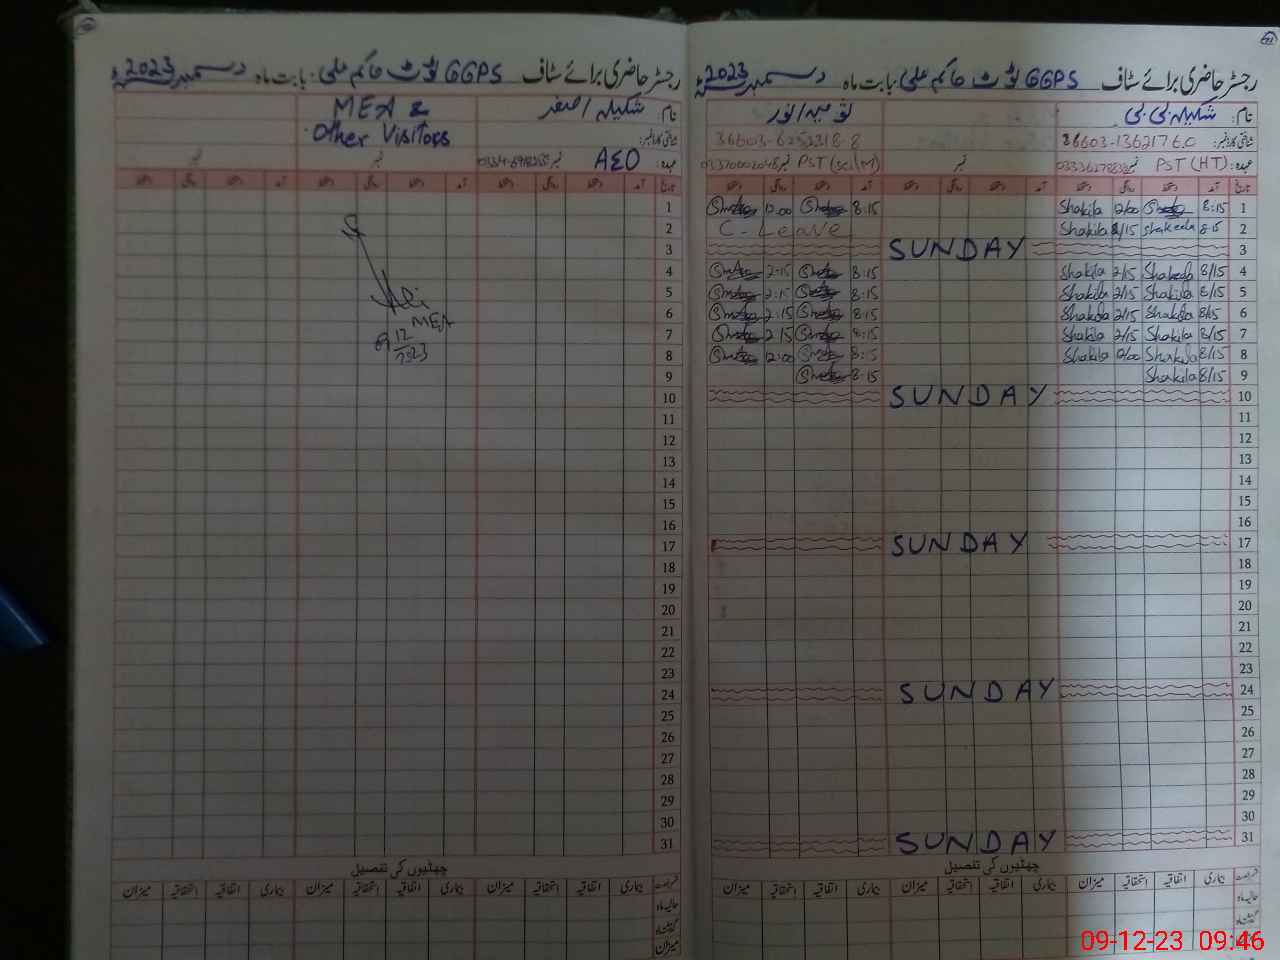 رجسٹر حاضری برائے سٹاف GGPS ٹوٹ حاکم علی بابت ماہ دسمبر 2023
نام: شکیلہ اصغر MEA &
Other Visitors
عہدہ: AEO نمبر
تاریخ آمد دستخط روانگی دستخط آمد دستخط روانگی دستخط آمد دستخط روانگی دستخط
1
2
3
4
5
6
7
8
9
10
11
12
13
14
15
16
17
18
19
20
21
22
23
24
25
26
27
28
29
30
31
Ali
MEA
9/12/2023
چھٹیوں کی تفصیل
رخصت بیماری اتفاقیہ استحقاقیہ میزان بیماری اتفاقیہ استحقاقیہ میزان بیماری اتفاقیہ استحقاقیہ میزان
حالیہ ماہ
گزشتہ ماہ
میزان
رجسٹر حاضری برائے سٹاف GGPS ٹوٹ حاکم علی بابت ماہ دسمبر 2023
نام: شکیلہ بی بی
شناختی کارڈ نمبر: 36603-1362176-0 36603-6252318-8
عہدہ: PST (HT) نمبر PST (Sci/M) نمبر 03370002048
تاریخ آمد دستخط روانگی دستخط آمد دستخط روانگی دستخط آمد دستخط روانگی دستخط
1 8:15 12/00 Shakila 8:15 12:00
2 8:15 Shakeela 2/15 Shakila C-Leave
3 SUNDAY
4 8/15 Shakeela 2/15 Shakila 8:15 2:15
5 8/15 Shakila 2/15 Shakila 8:15 2:15
6 8/15 Shakila 2/15 Shakila 8:15 2:15
7 8/15 Shakila 2/15 Shakila 8:15 2:15
8 8/15 Shakila 12/00 Shakila 8:15 12:00
9 8/15 Shakila 8:15
10 SUNDAY
11
12
13
14
15
16
17 SUNDAY
18
19
20
21
22
23
24 SUNDAY
25
26
27
28
29
30
31 SUNDAY
چھٹیوں کی تفصیل
رخصت بیماری اتفاقیہ استحقاقیہ میزان بیماری اتفاقیہ استحقاقیہ میزان بیماری اتفاقیہ استحقاقیہ میزان
حالیہ ماہ
گزشتہ ماہ
09-12-23 09:46